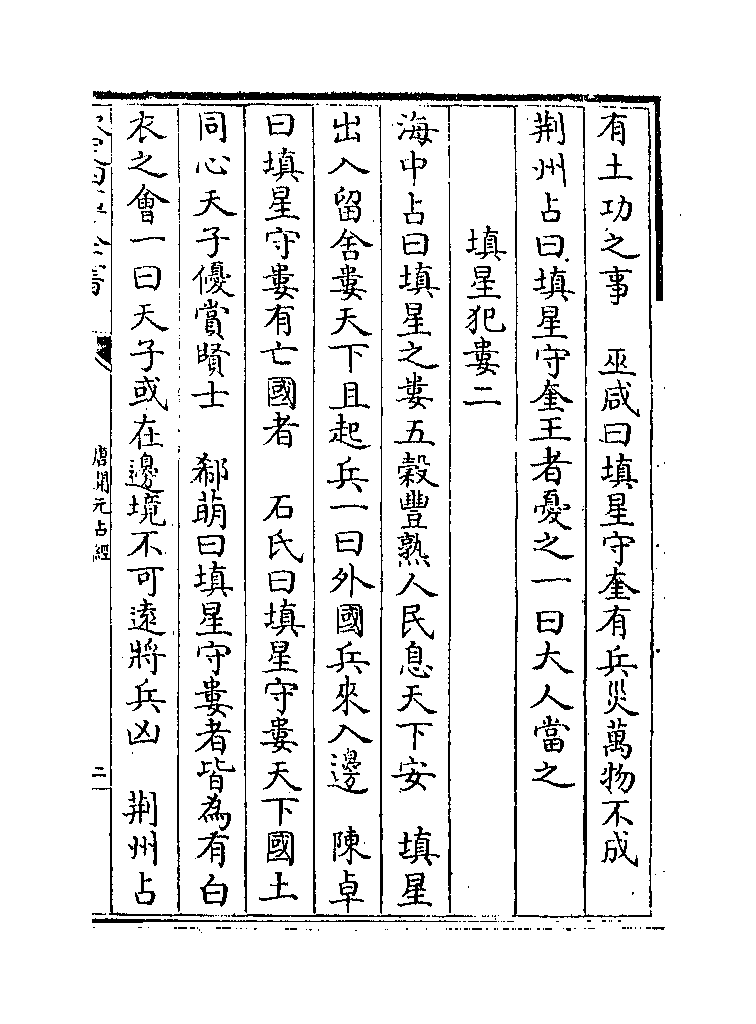 有土功之事　巫咸曰填星守奎有兵災萬物不成
荆州占曰填星守奎王者憂之一曰大人當之
填星犯婁二
海中占曰填星之婁五穀豐熟人民息天下安　填星
出入留舍婁天下且起兵一曰外國兵來入邊　陳卓
曰填星守婁有亡國者　石氏曰填星守婁天下國土
同心天子優賞賢士　郗萌曰填星守婁者皆為有白
衣之會一曰天子或在邊境不可遠將兵凶　荆州占
唐開元占經
二